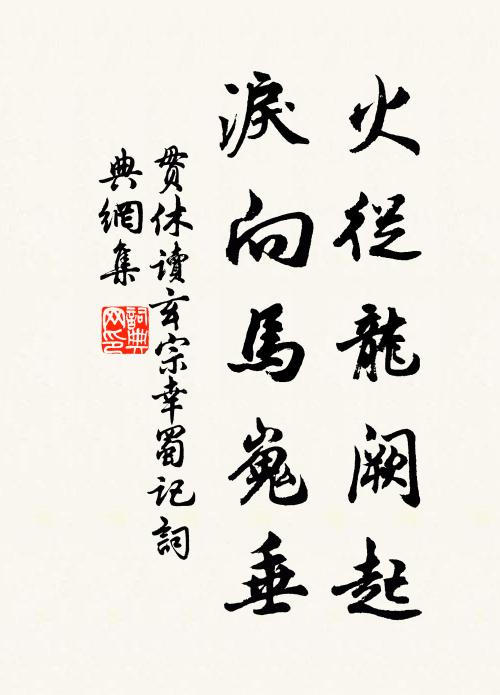 火從龍闕起
淚向馬嵬垂
貫休讀玄宗幸蜀記詞
典網集
詞典网印